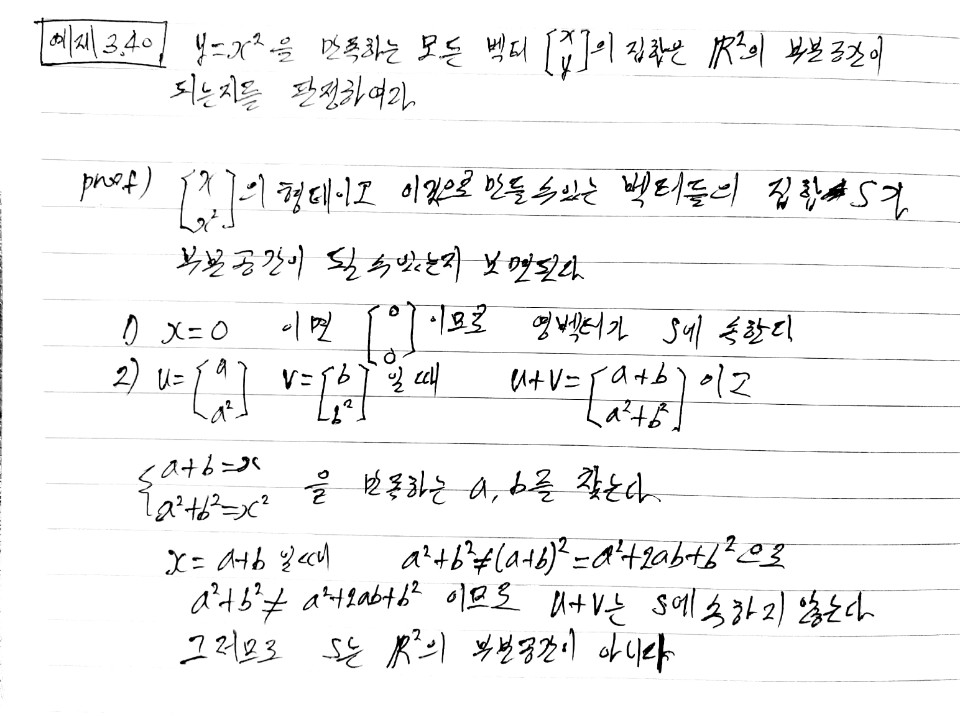 예제 3.40 y=x² 을 만족하는 모든 벡터 [x y]의 집합은 ℝ²의 부분공간이
되는지를 판정하여라
proof) [x x²]의 형태이고 이것으로 만들수있는 벡터들의 집합 S가
부분공간이 될 수 있는지 보면된다
1) x=0 이면 [0 0]이므로 영벡터가 S에 속한다
2) u=[a a²] v=[b b²]일 때 u+v=[a+b a²+b²]이고
{a+b=x a²+b²=x² 을 만족하는 a, b를 찾는다
x=a+b 일때 a²+b²≠(a+b)²=a²+2ab+b²으로
a²+b²≠ a²+2ab+b² 이므로 u+v는 S에 속하지 않는다
그러므로 S는 ℝ²의 부분공간이 아니다